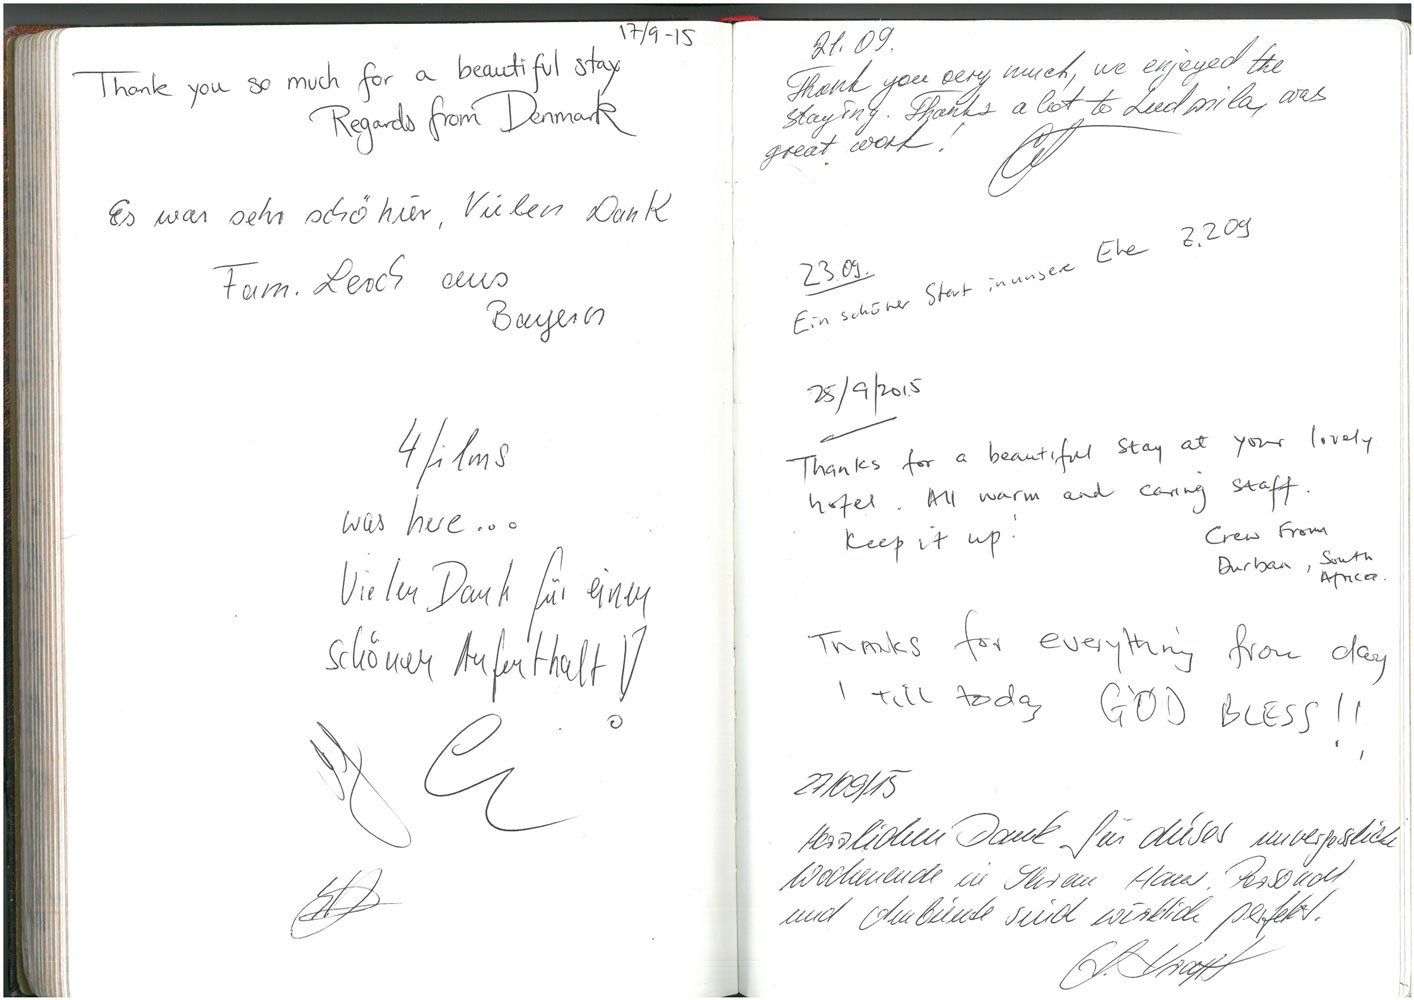 17/9-15
Thank you so much for a beautiful stay
Regards from Denmark
Es war sehr schö hier, Vielen Dank
Fam. aus
Bayern
4 films
was here...
Vielen Dank für einen
schönen Aufenthalt!
21.09.
Thank you very much, we enjoyed the
staying. Thanks a lot to Ludmila, was
great work!
23.09.
Ein schöner Start in unsere Ehe
25/9/2015
Thanks for a beautiful stay at your lovely
hotel. All warm and caring staff.
Keep it up!
Crew From
Durban, South
Africa.
THANKS for everything from day
1 till today GOD BLESS!!
27/09/15
Herzlichen Dank für dieses unvergessliche
Wochenende in Ihrem Haus. Personal
und Ambiente sind wirklich perfekt.